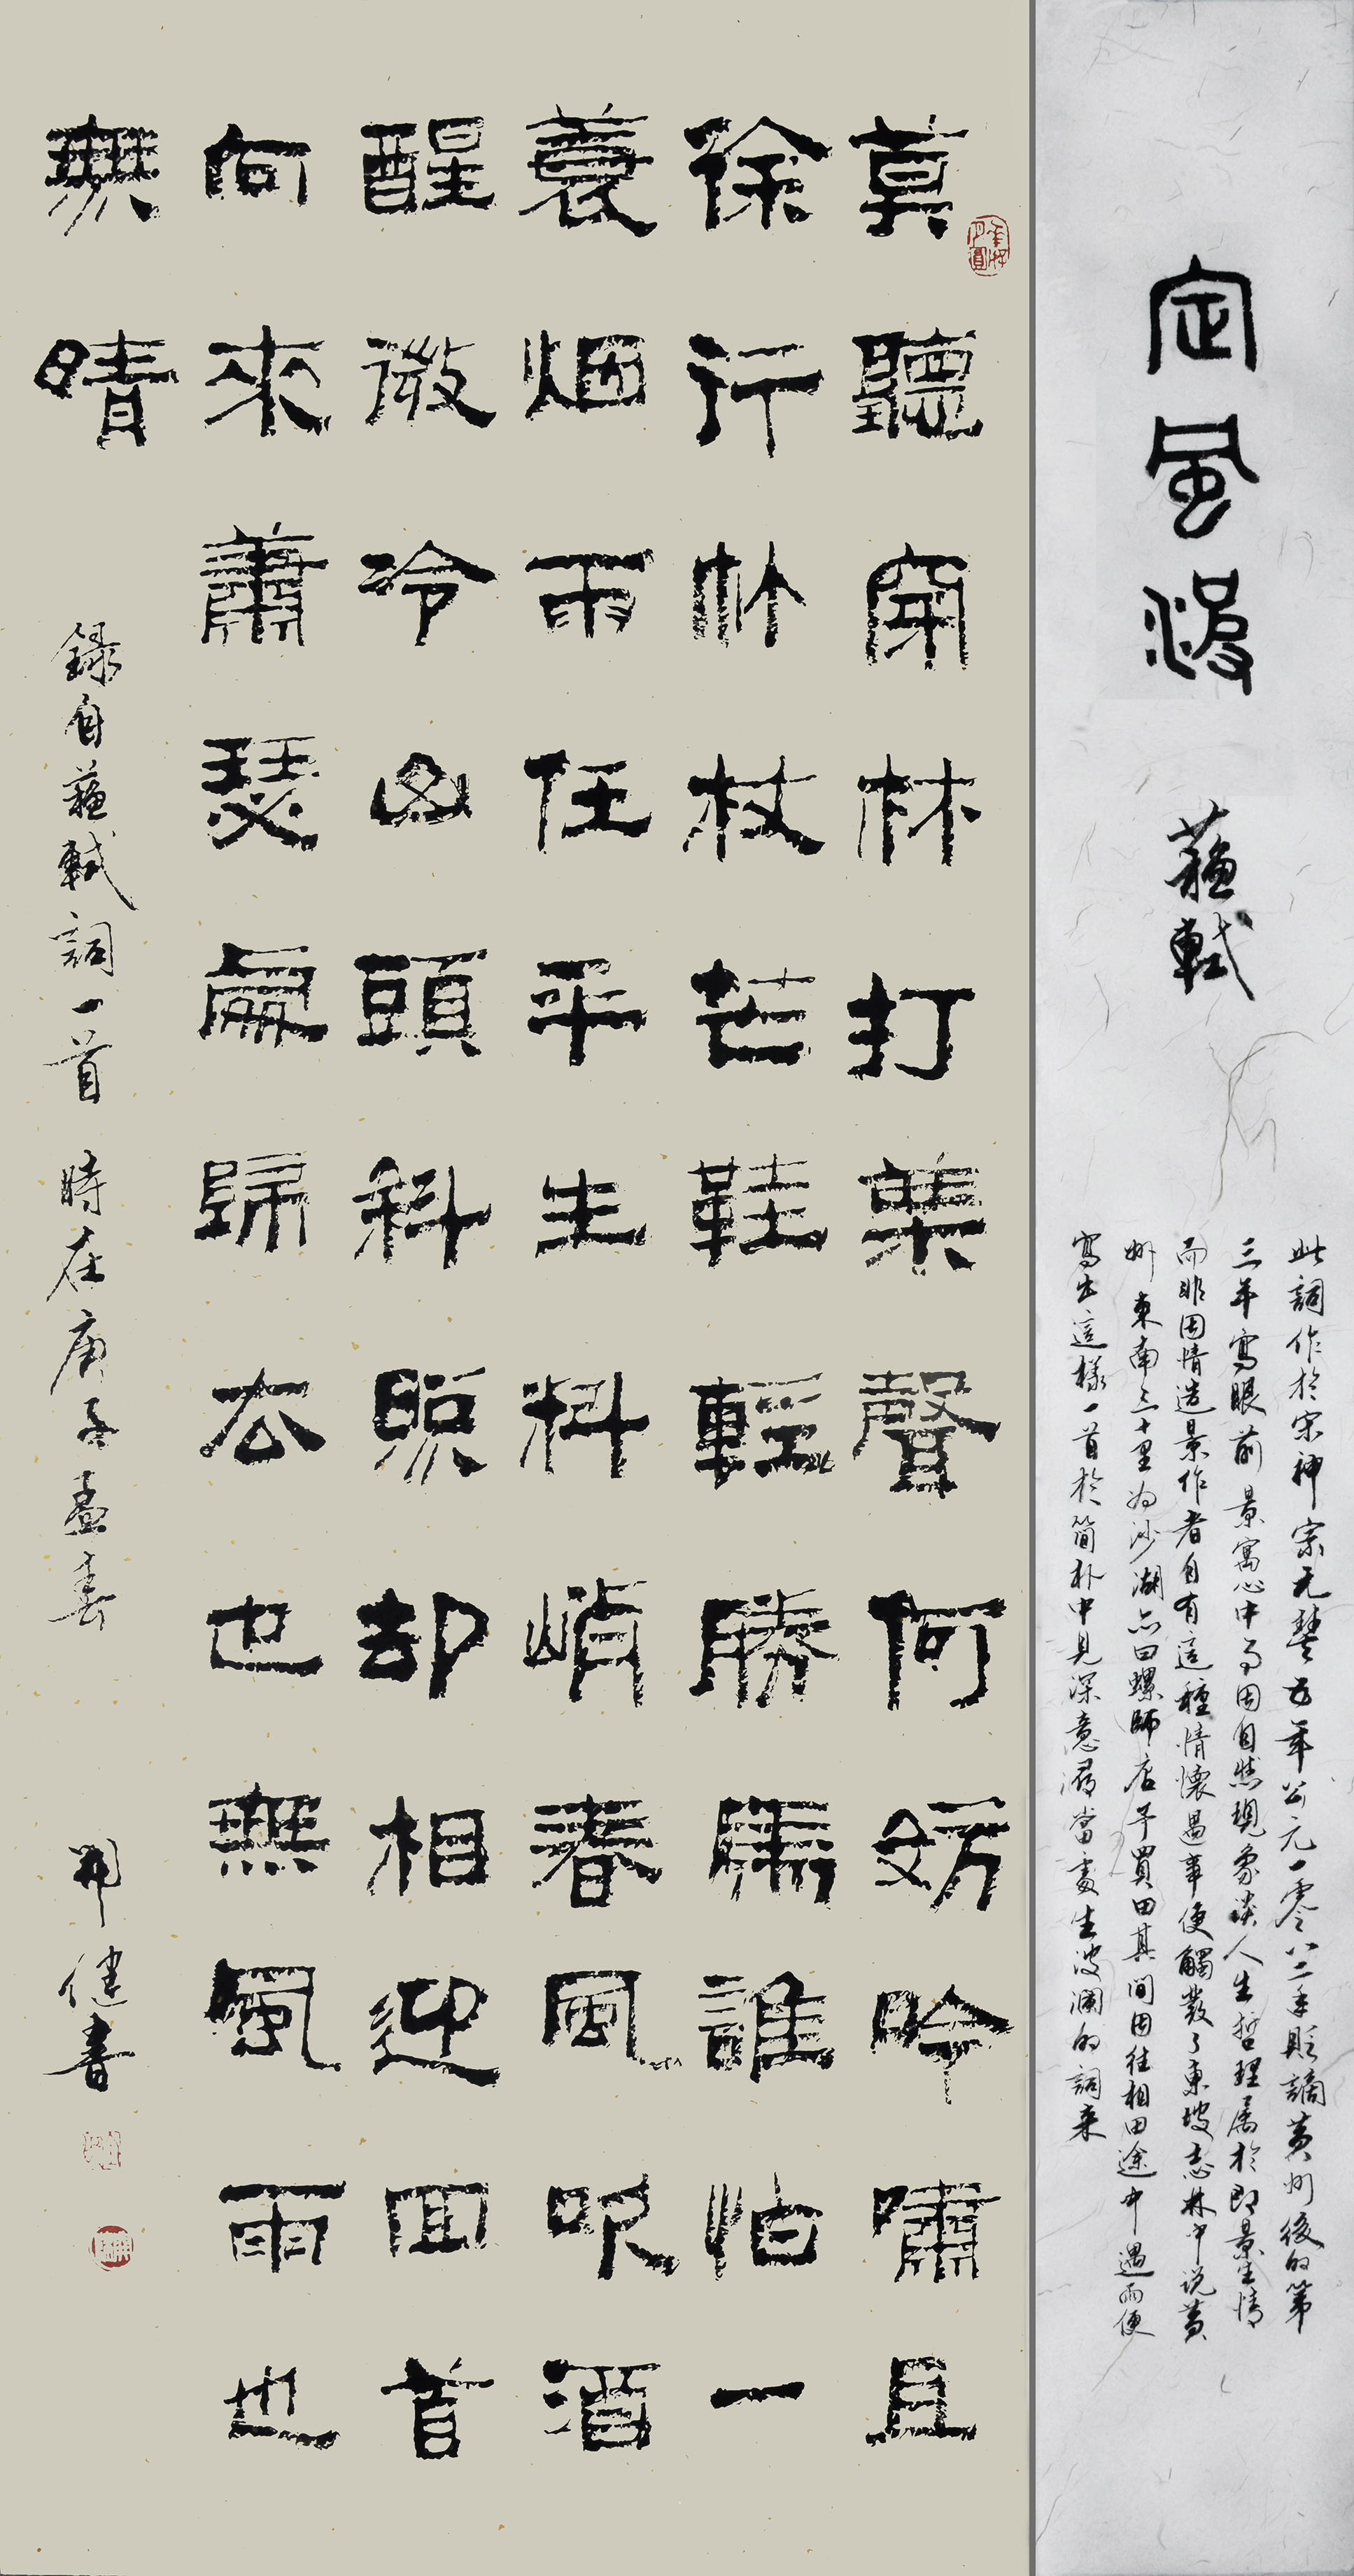 定風波
蘇軾
此詞作於宋神宗元豐五年公元一零八二年貶謫黃州後的第
三年寫眼前景寓心中事因自然現象談人生哲理屬於即景生情
而非因情造景作者自有這種情懷遇事便觸發了東坡志林中説黃
州東南三十里为沙湖亦曰螺師店予買田其間因往相田途中遇雨便
寫出這樣一首於簡朴中見深意潯當處生波瀾的詞来
莫聽穿林打葉聲何妨吟嘯且
徐行竹杖芒鞋輕勝馬誰怕一
蓑烟雨任平生料峭春風吹酒
醒微冷山頭斜照却相迎回首
向來蕭瑟處歸去也無風雨也
無晴
錄自蘇軾詞一首 時在庚子孟春 開健書